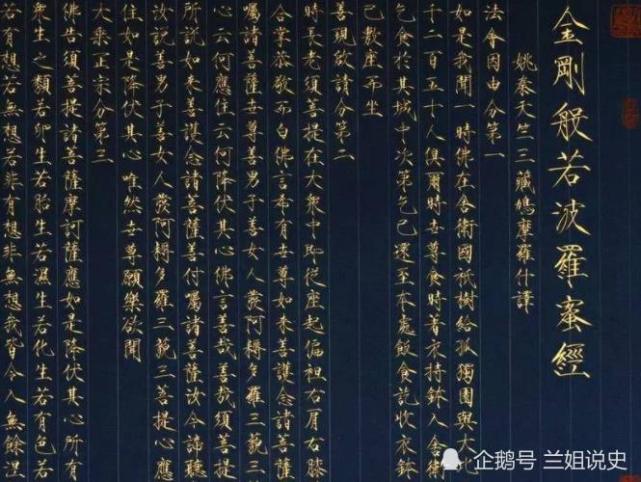 金剛般若波羅蜜經
姚秦天竺三藏鳩摩羅什譯
法會因由分第一
如是我聞一時佛在舍衛國祇樹給孤獨園與大比
千二百五十人俱爾時世尊食時著衣持鉢入舍衛
乞食於其城中次第乞已還至本處飯食訖收衣鉢
已敷座而坐
善現啟請分第二
時長老須菩提在大衆中即從座起偏袒右肩右膝
合掌恭敬而白佛言希有世尊如來善護念諸菩薩
囑諸菩薩世尊善男子善女人發阿耨多羅三藐三
心云何應住云何降伏其心佛言善哉善哉須菩提
所說如來善護念諸菩薩善付囑諸菩薩汝今諦聽
汝說善男子善女人發阿耨多羅三藐三菩提心應
住如是降伏其心唯然世尊願樂欲聞
大乘正宗分第三
佛告須菩提諸菩薩摩訶薩應如是降伏其心所有
衆生之類若卵生若胎生若濕生若化生若有色若
若有想若無想若非有想非無想我皆令入無餘涅
企鹅号 兰姐说史